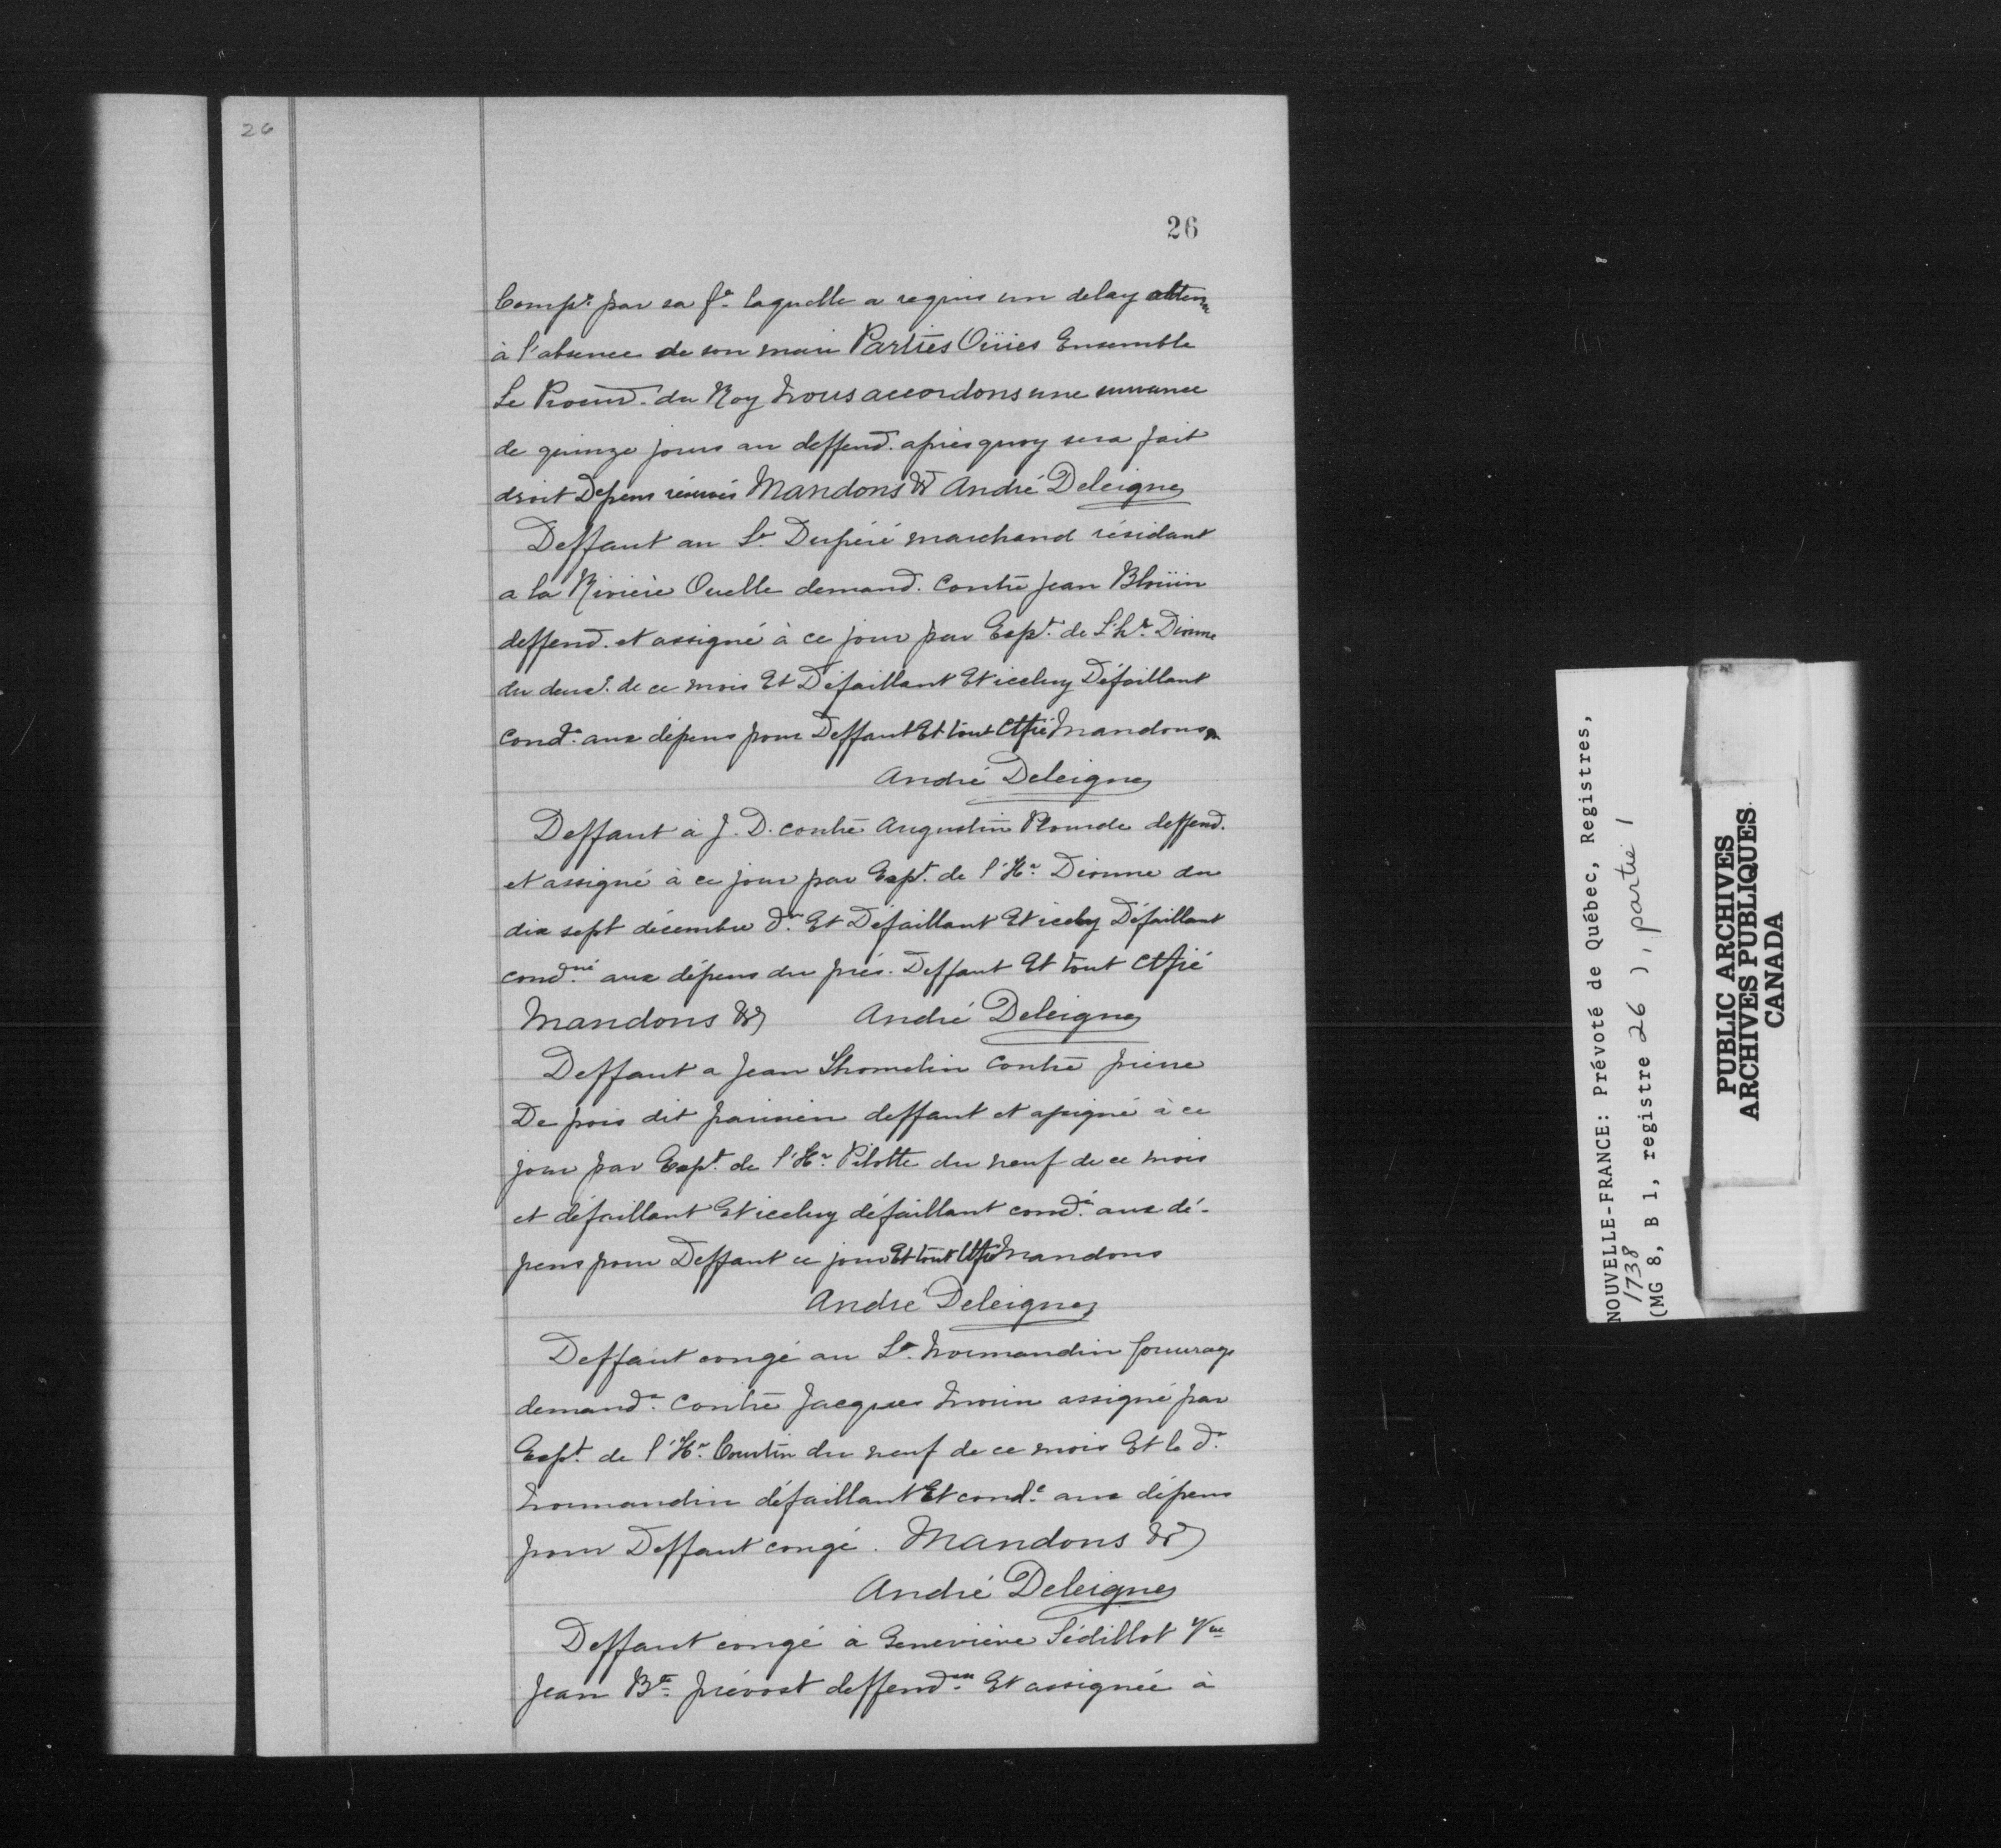 26
26
Comp.t par sa f.e laquelle a requis un delay attenu
à l'absence de son mari Parties Oüies Ensemble
Le Procur. du Roy Nous accordons une surance
de quinze jours au deffend. après quoy sera fait
droit Depens réservés Mandons &c André Deleigne
Deffaut au Sr. Dupéré marchand résidant
a la Rivière Ouelle demand. Contre Jean Bloüin
deffend. et assigné à ce jour par Expt. de L'hr. Dionne
du deux. de ce mois Et Défaillant Et iceluy Défaillant
cond.é aux dépens pour Deffaut Et tout Mandons
André Deleigne
Deffaut à J. D. contre Augustin Plourde deffend.
et assigné à ce jour par Expt. de l'Hr. Dionne du
dix sept décembre d.r Et Défaillant Et iceluy Défaillant
cond.né aux dépens du prés. Deffaut Et tout
Mandons &c André Deleigne
Deffaut a Jean Thomelin Contre pierre
De pois dit parisien deffaut et assigné à ce
jour par Expt. de l'Hr. Pilotte du neuf de ce mois
et défaillant Et iceluy défaillant cond.é aux dé-
pens pour Deffaut ce jour Et tout Mandons
André Deleigne
Deffaut congé au Sr. Normandin
demand.r Contre Jacques Morin assigné par
Expt. de l'Hr. Courtin du neuf de ce mois Et le d.
Normandin défaillant Et cond.é aux dépens
pour Deffaut congé. Mandons &c
André Deleigne
Deffaut congé à Geneviève Sédillot Vve
Jean Bte. prévost deffend.sse Et assignée à
NOUVELLE-FRANCE: Prévoté de Québec, Registres,
1738
(MG 8, B 1, registre 26), partie 1
PUBLIC ARCHIVES
ARCHIVES PUBLIQUES
CANADA